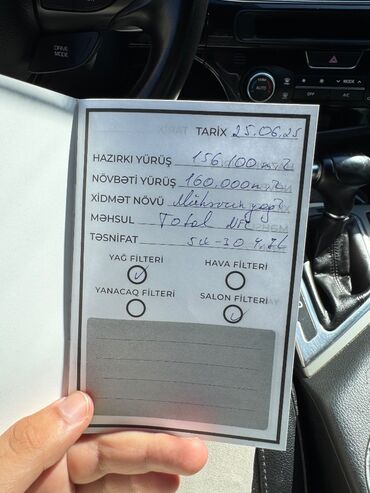 DRIVE
MODE
AUTO
MODE
A/C
TARİX 25.06.25
HAZIRKI YÜRÜŞ 156.100
NÖVBƏTİ YÜRÜŞ 160.000
XİDMƏT NÖVÜ Mühərrik yağı
MƏHSUL Total NFC
TƏSNİFAT 5W-30
YAĞ FİLTERİ
HAVA FİLTERİ
YANACAQ FİLTERİ
SALON FİLTERİ